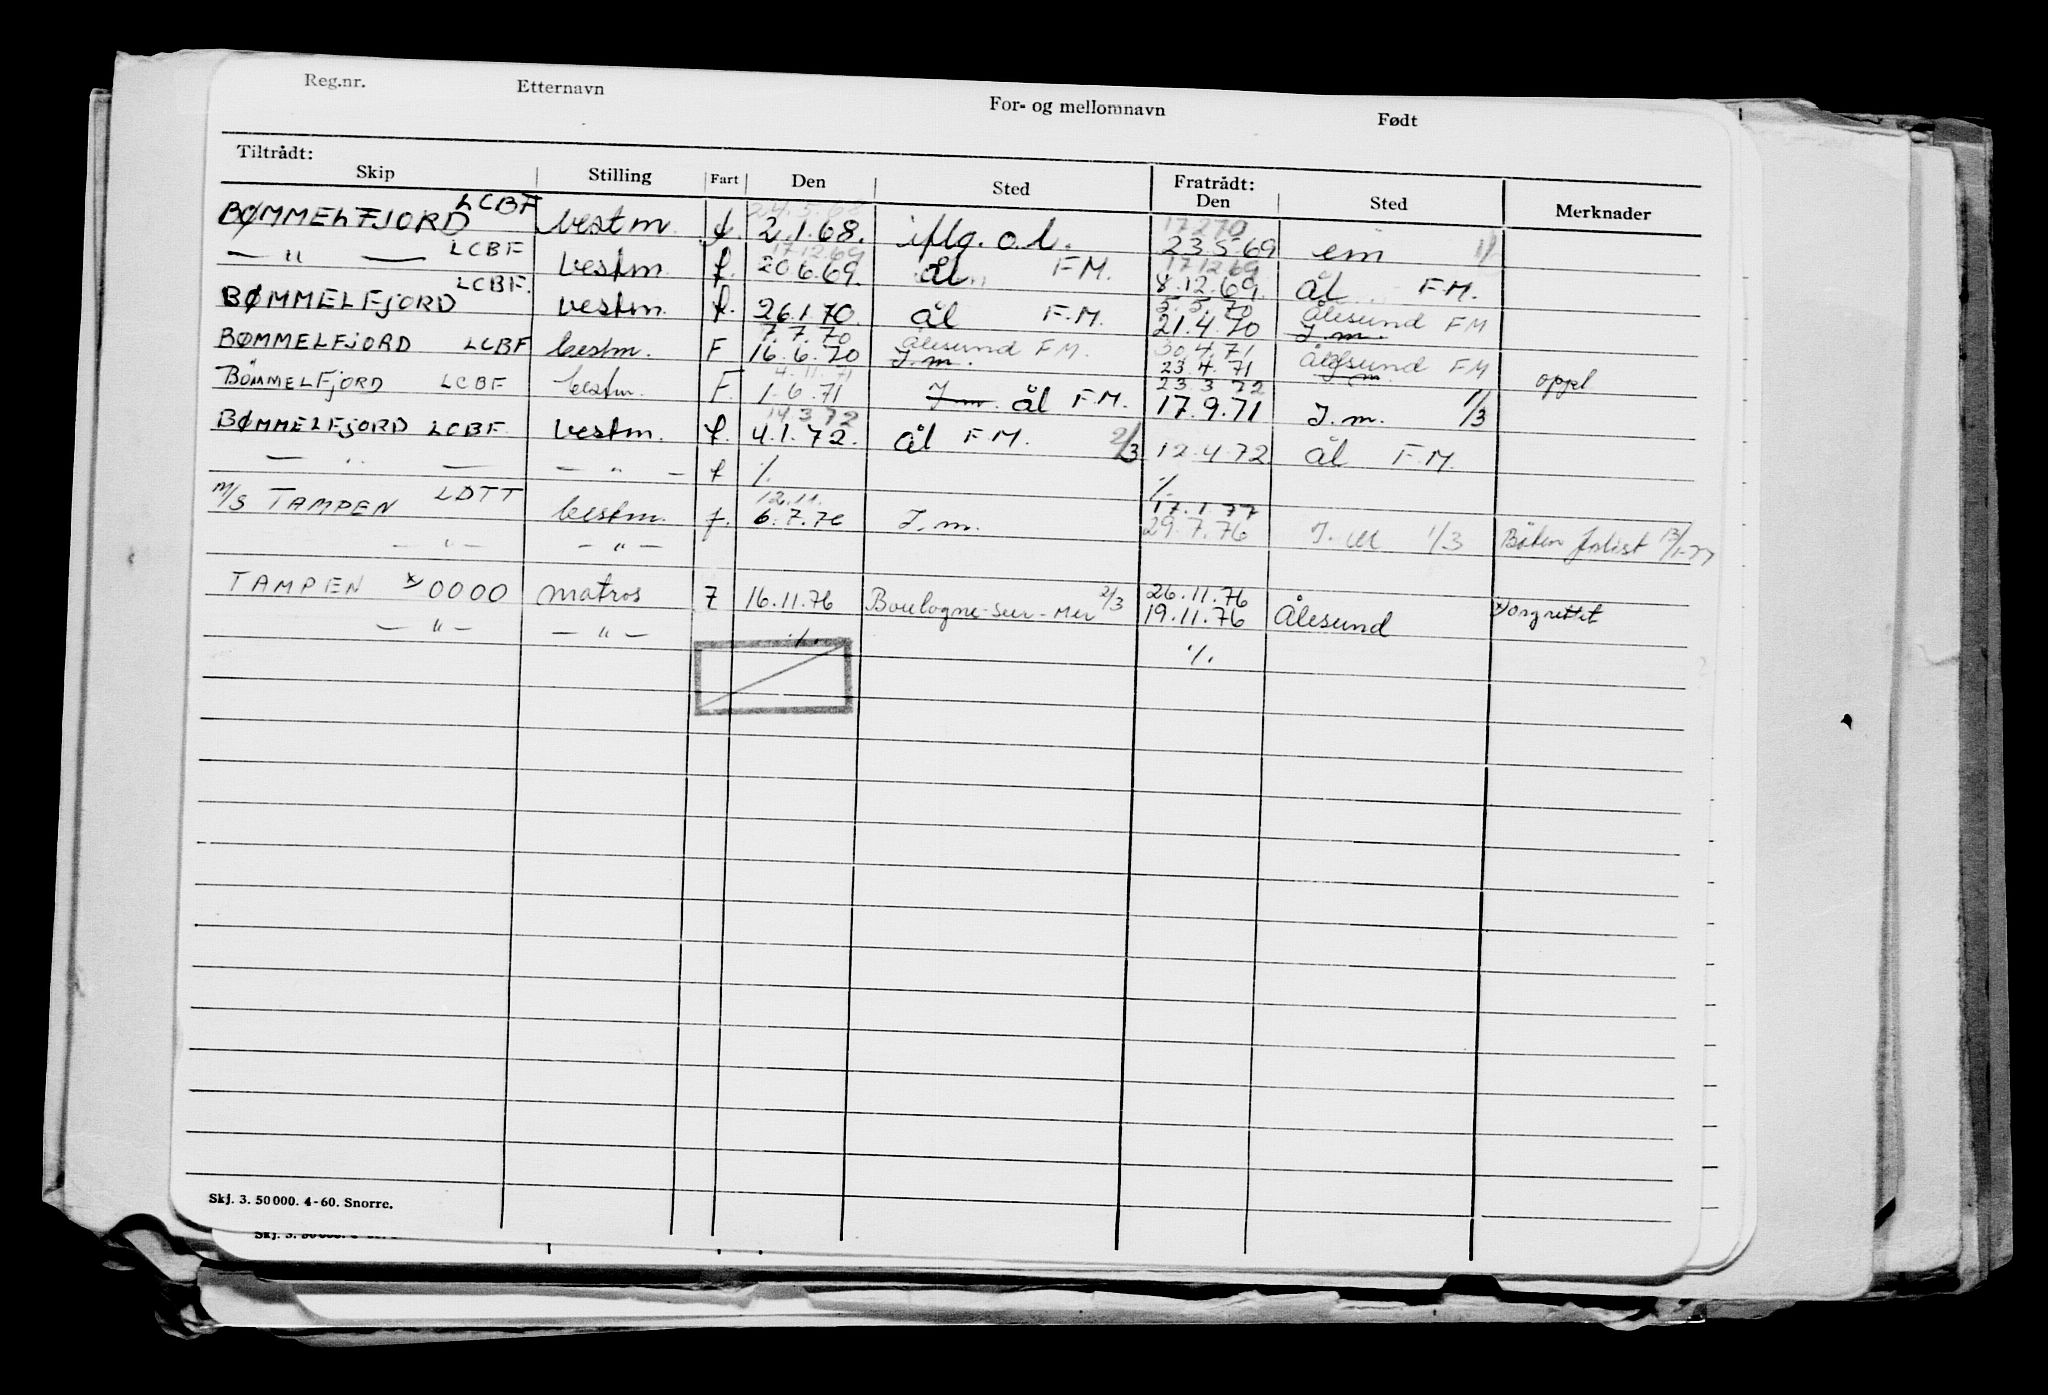 Reg.nr. Etternavn For- og mellomnavn Født
Tiltrådt: Fratrådt:
Skip Stilling Fart Den Sted Den Sted Merknader
24.5.68 17 2 70
BØMMELFJORD LCBF bestm. f. 2.1.68. iflg. o.l. 23.5.69 em 1/
17.12.69 17.12.69
— " — LCBF bestm. f. 20.6.69. ål F.M. 8.12.69. ål F.M.
5.5.70 Ålesund FM
BØMMELFJORD LCBF. bestm. f. 26.1.70. ål F.M. 21.4.70 I.m.
7.7.70 Ålesund FM. 30.4.71 Ålesund FM
BØMMELFJORD LCBF bestm. F 16.6.70 I.m. 23.4.71 I.m. oppl
4.11.71 23.3.72
BÖMMELFJORD LCBF bestm. F. 1.6.71 I.m. ål F.M. 17.9.71 I.m. 1/3
14.3.72
BØMMELFJORD LCBF bestm. f. 4.1.72. ål F.M. 2/3 12.4.72 ål F.M.
— " — — " — f ./. ./.
12.11. 17.1.77
M/S TAMPEN LDTT bestm. f. 6.7.76 I.m. 29.7.76 I.m 1/3 Båten forlist 13/1-77
— " — — " —
26.11.76
TAMPEN x) 0000 matros 7 16.11.76 Boulogne-sur-Mer 2/3 19.11.76 Ålesund x)
— " — — " — ./. ./.
Skj. 3. 50 000. 4-60. Snorre.